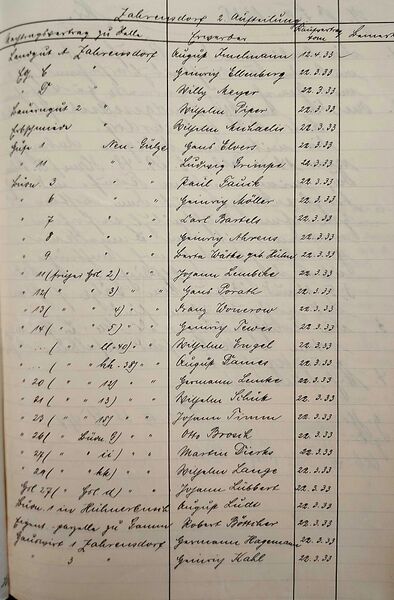 Zahrensdorf 2. Aufteilung
Auftragsvertrag zu Stelle Erwerber Kaufvertrag vom
Landgut A Zahrensdorf August 12.4.33
" " Heinrich Ellenberg 22.3.33
" " Willy Meyer 22.3.33
Bauerngut 2 " Wilhelm Piper 22.3.33
" Wilhelm Michaelis 22.3.33
Hufe 1 Neu-Gülze Hans Elvers 22.3.33
" 11 " " Ludwig Grimpe 22.3.33
Büdn. 3 " " Paul Fauck 22.3.33
" 6 " " Heinrich Möller 22.3.33
" 7 " " Karl Bartels 22.3.33
" 8 " " Heinrich Ahrens 22.3.33
" 9 " " Berta geb. 22.3.33
" 11 (früher Gsl 2) " " Johann Lembcke 22.3.33
" 12 ( " " 3) " " Hans Porath 22.3.33
" 13 ( " " 4) " " Franz Wonerow 22.3.33
" 14 ( " " 5) " " Heinrich Tewes 22.3.33
" ( " " ) " " Wilhelm Engel 22.3.33
" ( " " ) " " August Dames 22.3.33
" 20 ( " " 12) " " Hermann Lemke 22.3.33
" 21 ( " " 13) " " Wilhelm Schult 22.3.33
" 23 ( " " 18) " " Johann Timm 22.3.33
" 26 ( " Büdn 9) " " Otto Brosch 22.3.33
" 27 ( " " ) " " Martin Dierks 22.3.33
" 29 ( " " ) " " Wilhelm Lange 22.3.33
Gsl 27 ( " Gsl d) " " Johann Lübbert 22.3.33
Büdn. 1 in August Lüdt 22.3.33
zu Robert Böttcher 22.3.33
Hauswirt 1 Zahrensdorf Hermann Hagemann 22.3.33
" 3 " Heinrich Kahl 22.3.33